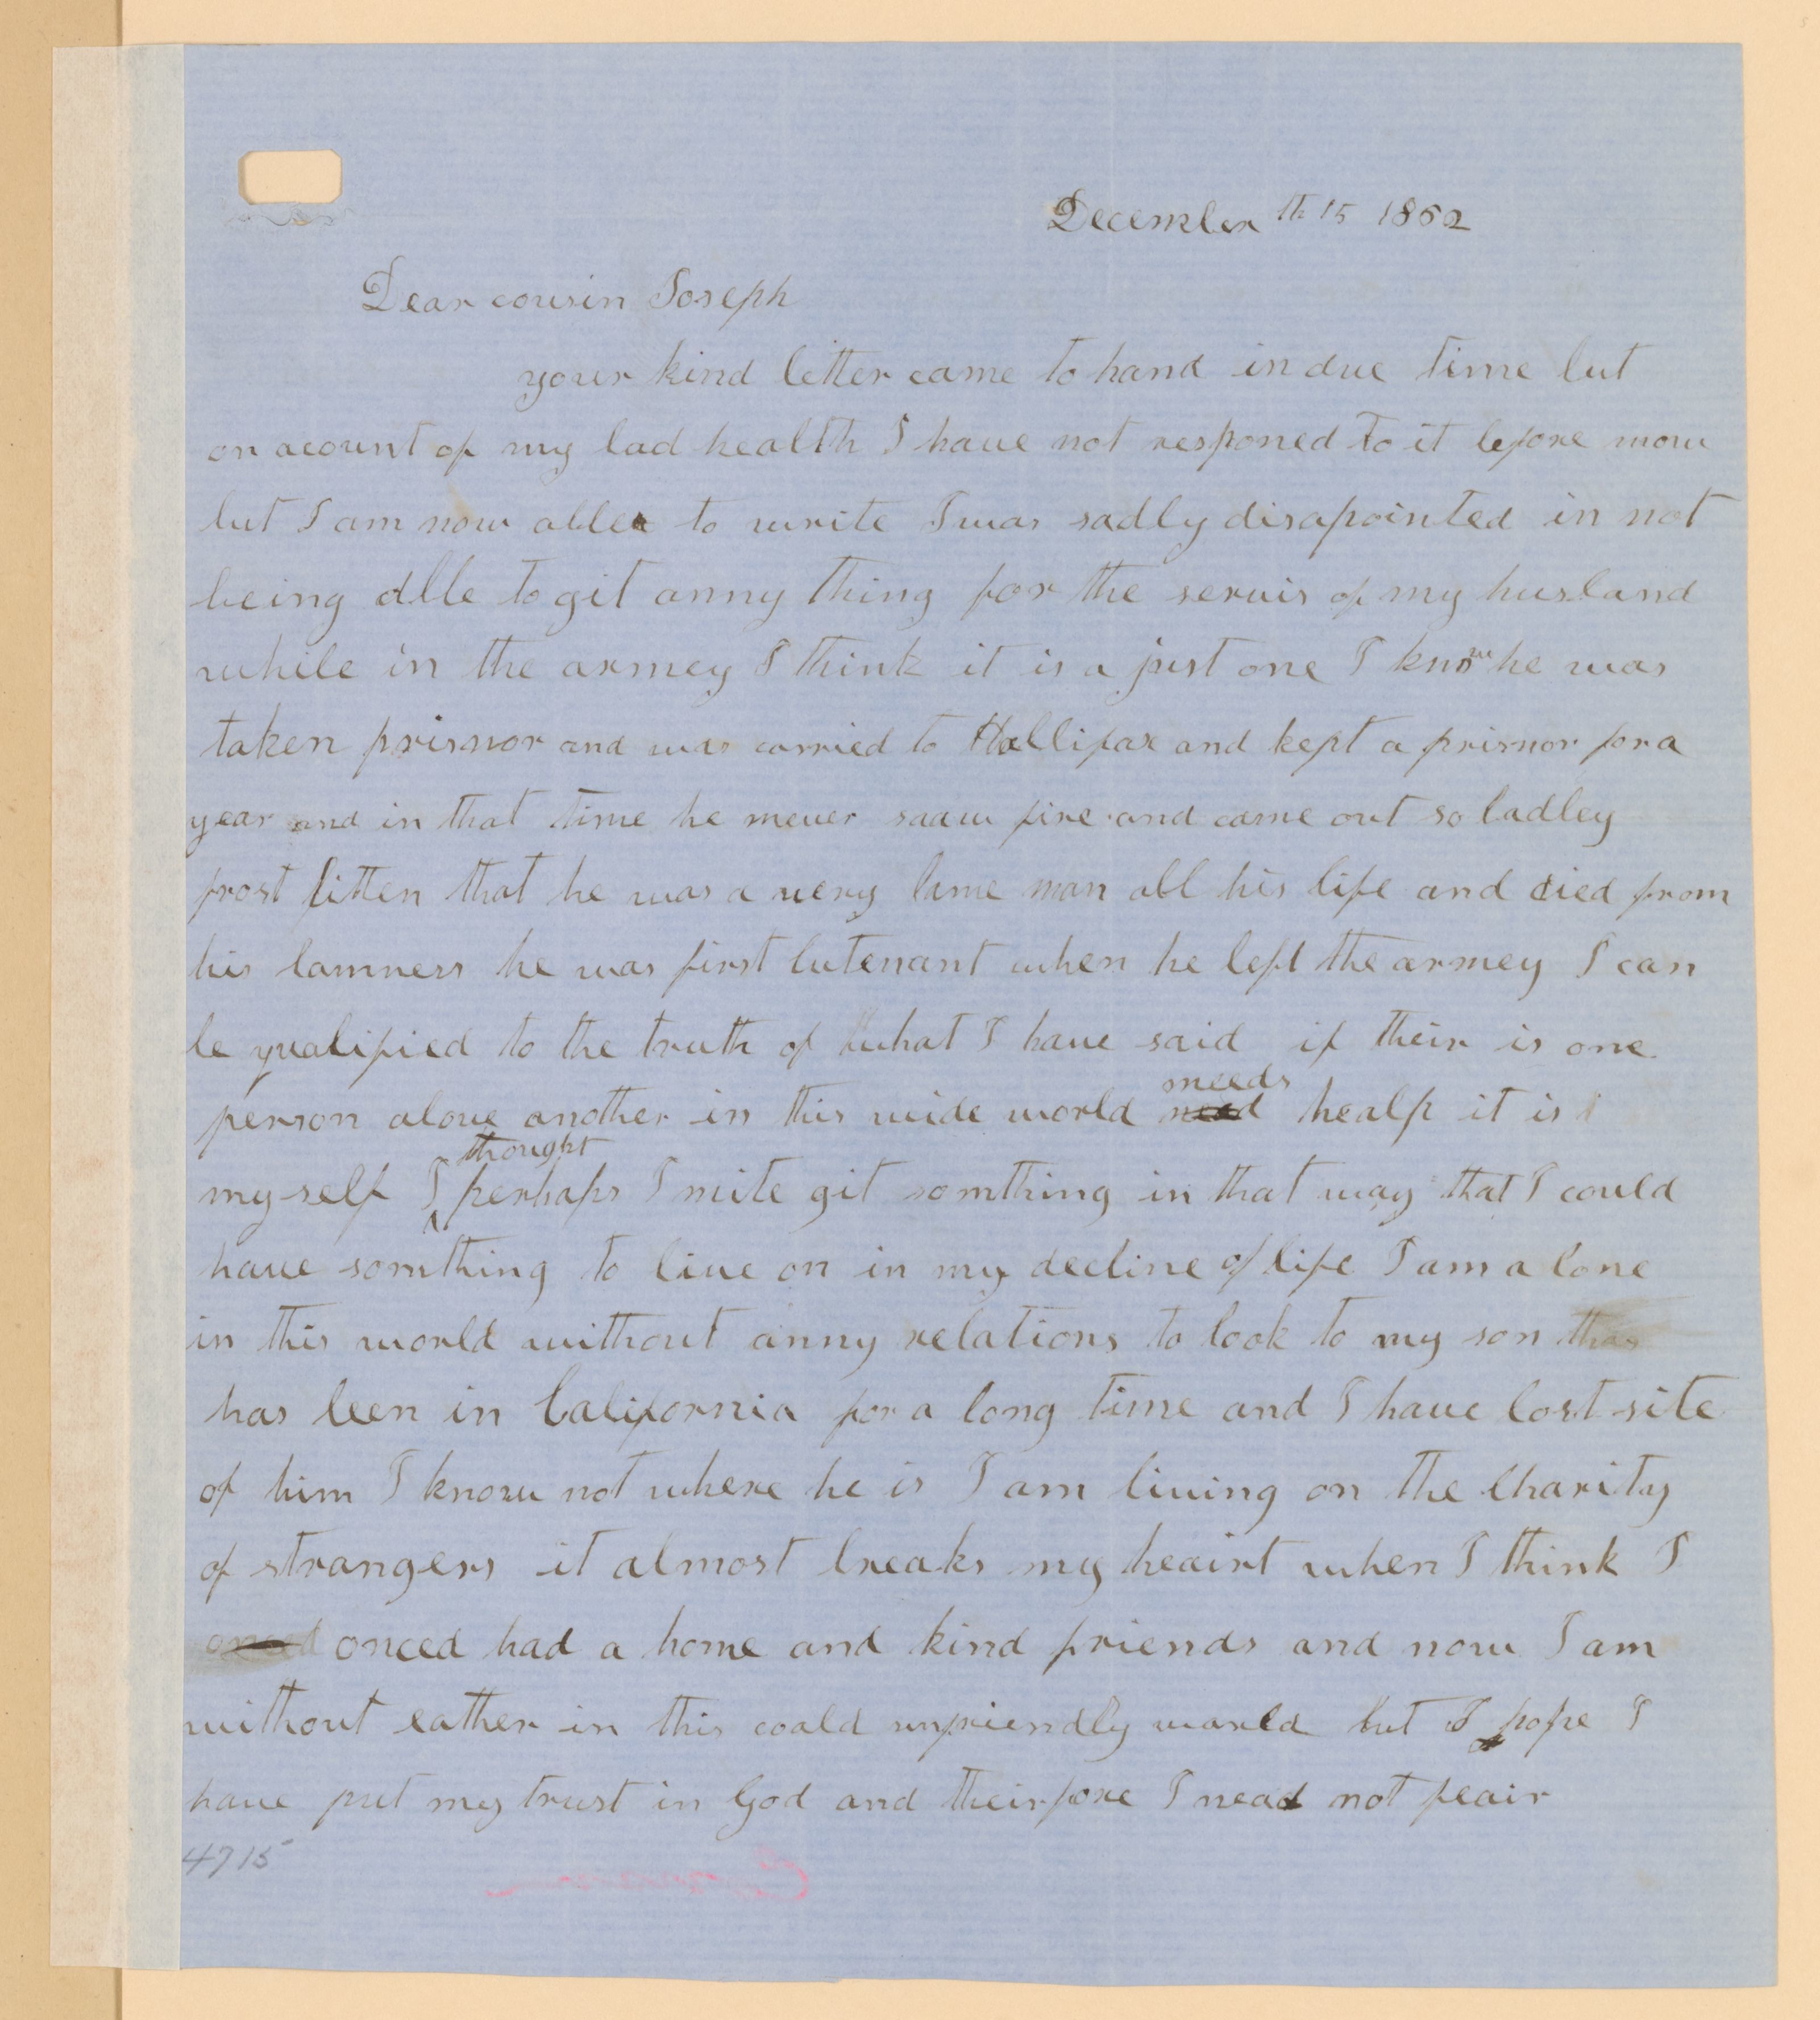 December th 15 1852
Dear cousin Joseph
your kind letter came to hand in due time but
on acount of my bad health I have not responed to it before now
but I am now able to write I was sadly disapointed in not
being able to git anny thing for the servis of my husband
while in the armey I think it is a just one I know he was
taken prisnor and was carried to Hallifax and kept a prisnor for a
year and in that time he never saaw fire and came out so badley
frost bitten that he was a very lame man all his life and died from
his lamness he was first lutenant when he left the armey I can
be qualified to the truth of what I have said if their is one
person above another in this wide world need needs healp it is
my self I thought perhaps I mite git somthing in that way that I could
have somthing to live on in my decline of life I am a lone
in this world without anny relations to look to my son
has been in California for a long time and I have lost site
of him I know not where he is I am living on the charity
of strangers it almost breaks my heairt when I think I
onced onced had a home and kind friends and now I am
without eather in this coald unfriendly warld but I hope I
have put my trust in God and theirfore I nead not feair
4715